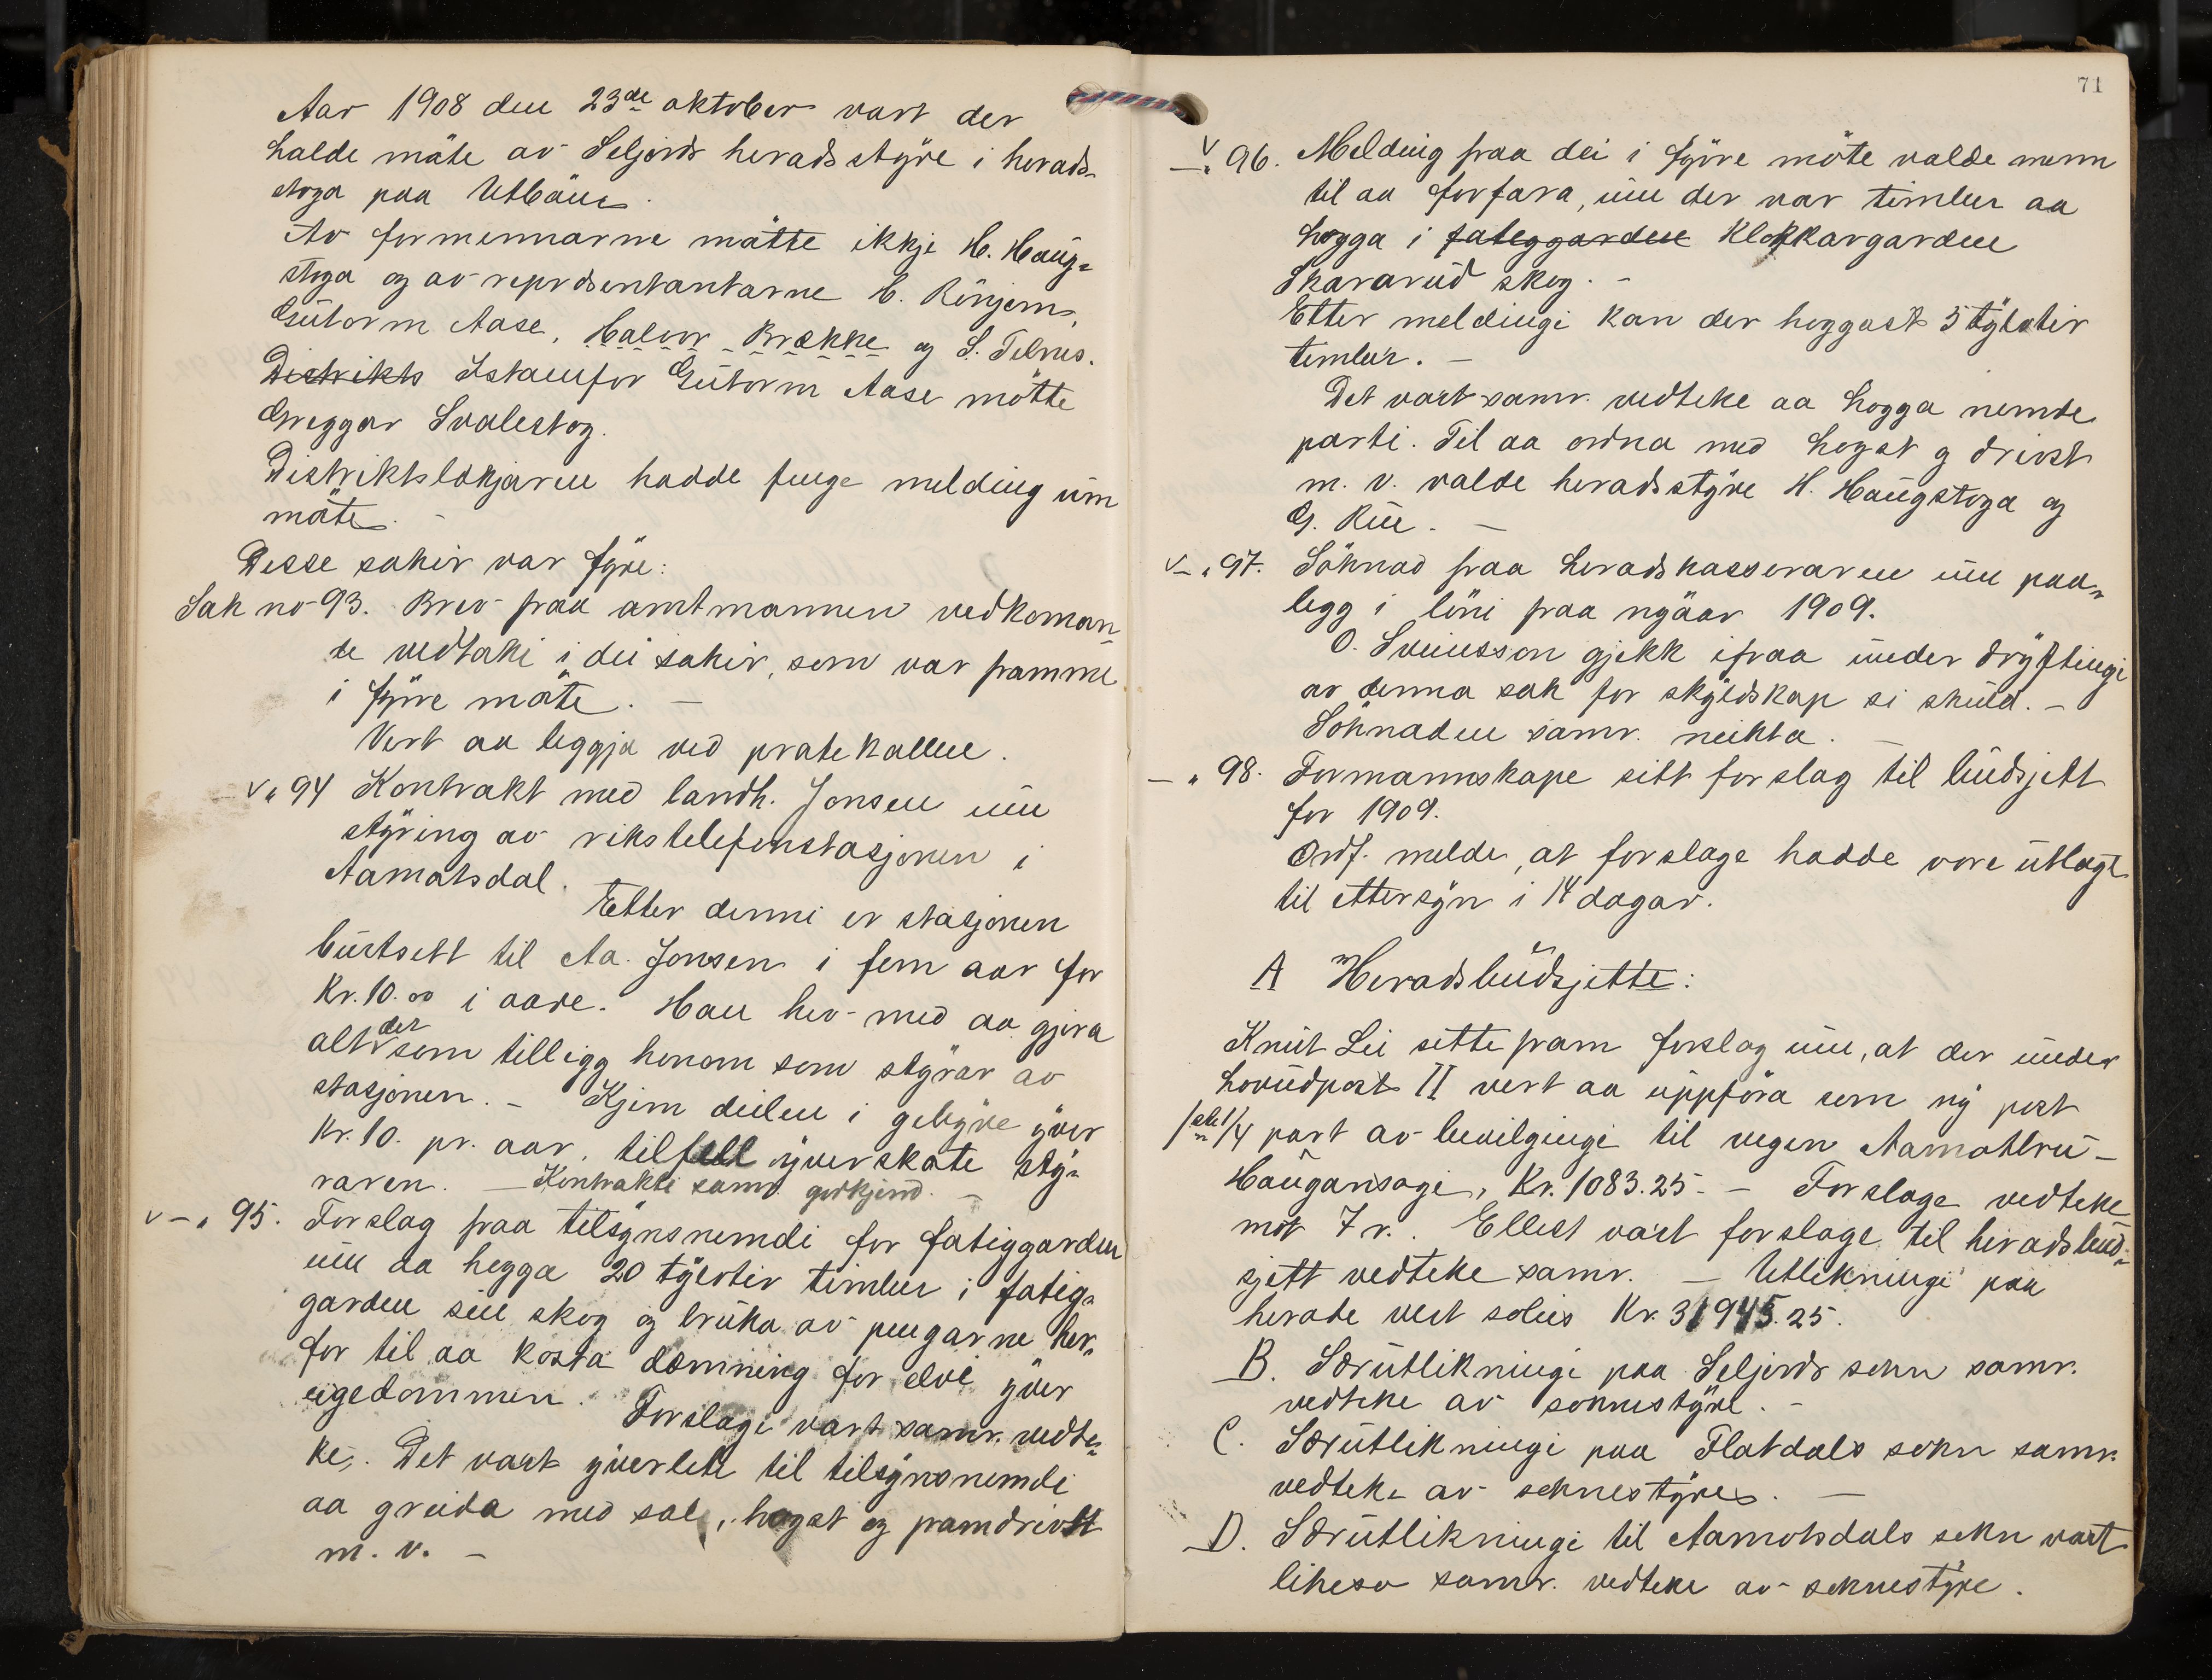 Aar 1908 den 23de oktober vart der
halde møte av Seljords heradsstyre i herads-
stoga paa Utbøen.
Av formennarne møtte ikkje H. Haug-
stoga og av repræsentantarne H. Rinjom,
Gutorm Aase, Halvor Brække og S. Telnes.
Distrikts Istaenfor Gutorm Aase møtte
Greggar Svalestog.
Distriktslækjaren hadde fenge melding um
møte. -
Desse sakir var fyre:
Sak no 93. Brev fraa amtmannen vedkoman-
de vedtaki i dei sakir, som var framme
i fyrre møte. -
Vert aa leggja ved protekollen.
v " 94 Kontrakt med landh. Jonsen um
styring av rikstelefonstasjonen i
Aamotsdal.
Etter denni er stasjonen
burtsett til Aa. Jonsen i fem aar for
Kr. 10.00 i aare. Han hev med aa gjera
alt der som tilligg honom som styrar av
stasjonen. - Kjem deilen i gebyre yver
Kr. 10. pr. aar, tilfell yverskote sty-
raren. - Kontrakti samr. godkjend. -
v - " 95. Forslag fraa tilsynsnemdi for fatiggarden
um aa hogga 20 tylvtir timber i fatig-
garden sin skog og bruka av pengarne her-
for til aa kosta dæmning for elvi yver
eigedommen. Forslage vart samr. vedte-
ke. Det vart yverlete til tilsynsnemdi
aa greida med sal, hogst og framdrivst
m. v. -
71
v - " 96. Melding fraa dei i fyrre møte valde menn
til aa forfara, um der var timber aa
hogga i fatiggarden Klokkargarden
Skararud skog. -
Etter meldingi kan der hoggast 5 tylvtir
timber. -
Det vart samr. vedteke aa hogga nemde
parti. Til aa ordna med hogst og drivst
m. v. valde heradsstyre H. Haugstoga og
G. Rue. -
v - " 97. Søknad fraa heradskasseraren um paa-
legg i løni fraa nyaar 1909.
O. Sveinsson gjekk ifraa under drøftingi
av denna sak for skyldskap si skuld. -
Søknaden samr. neikta. -
- " 98. Formannskape sitt forslag til budsjett
for 1909.
Ordf. melde, at forslage hadde vore utlagt
til ettersyn i 14 dagar.
A Heradsbudsjette:
Knut Lii sette fram forslag um, at der under
hovudpost II vert aa uppføra som ny post
1/4 part av bevilgingi til vegen Aamotbru-
Haugansagi, Kr. 1083.25. - Forslage vedteke
mot 7 r. Ellest vart forslage til heradsbud-
sjett vedteke samr. - Utlikningi paa
herade vert soleis Kr. 31945.25.
B. Særutlikningi paa Seljords sokn samr.
vedteke av soknestyre. -
C. Særutlikningi paa Flatdals sokn samr.
vedteke av soknestyre. -
D. Særutlikningi til Aamotsdals sokn vart
likeso samr. vedteke av soknestyre.